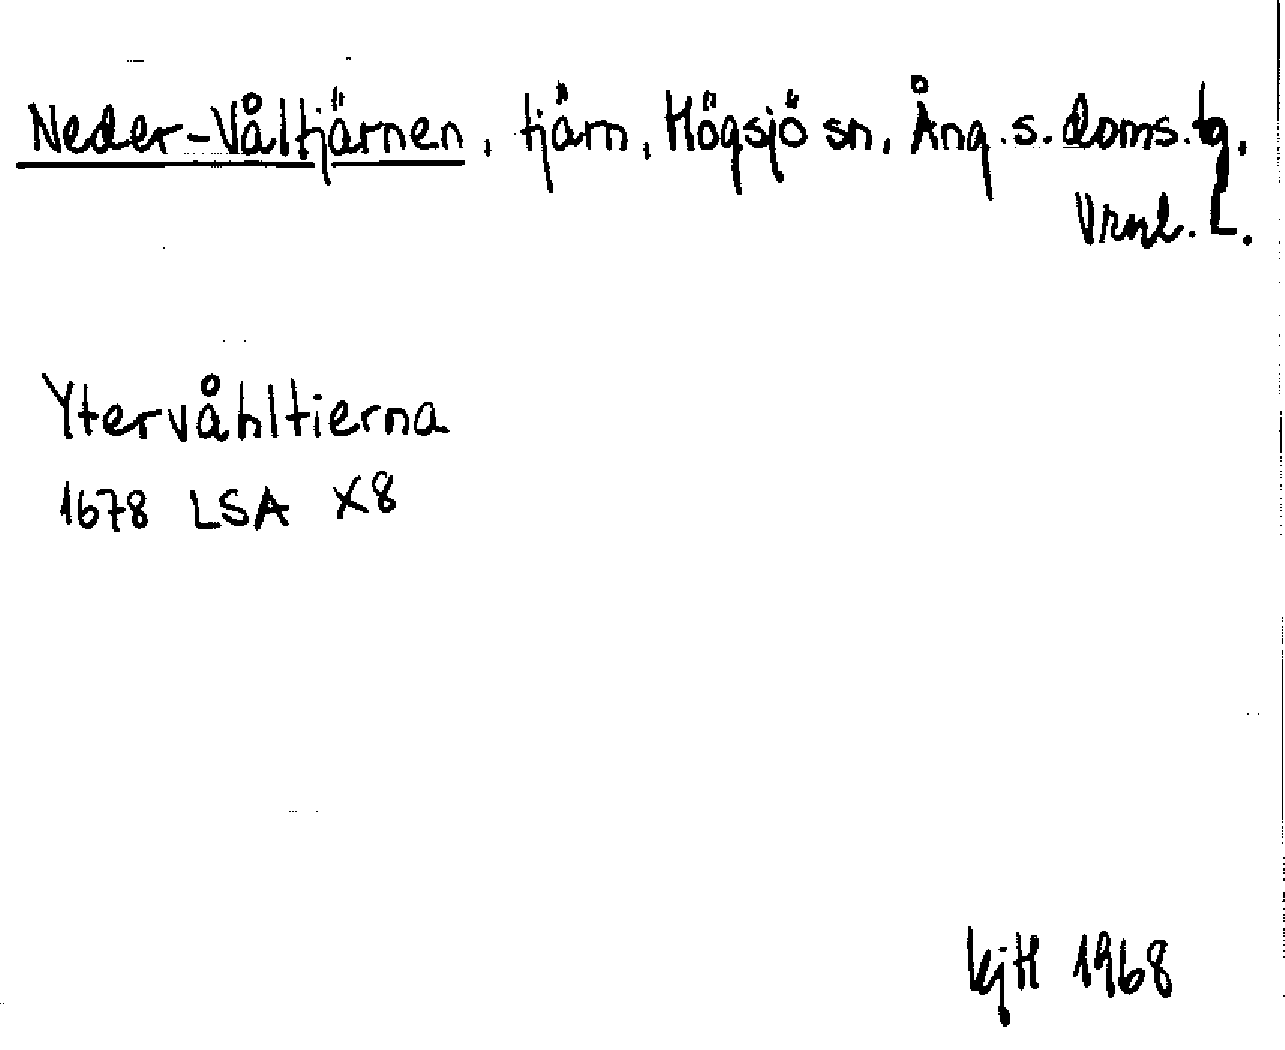 Neder-Våltjärnen, tjärn, Högsjö sn, Ång.s.doms.tg.
Vrnl. L.
Ytervåhltierna
1678 LSA X8
kjH 1968